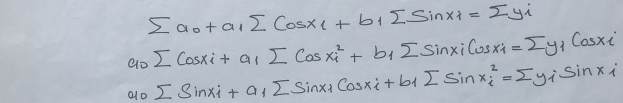 Σ a₀ + a₁ Σ Cosxi + b₁ Σ Sinxi = Σyi
a₀ Σ Cosxi + a₁ Σ Cosxi² + b₁ Σ Sinxi Cosxi = Σyi Cosxi
a₀ Σ Sinxi + a₁ Σ Sinxi Cosxi + b₁ Σ Sinxi² = Σyi Sinxi